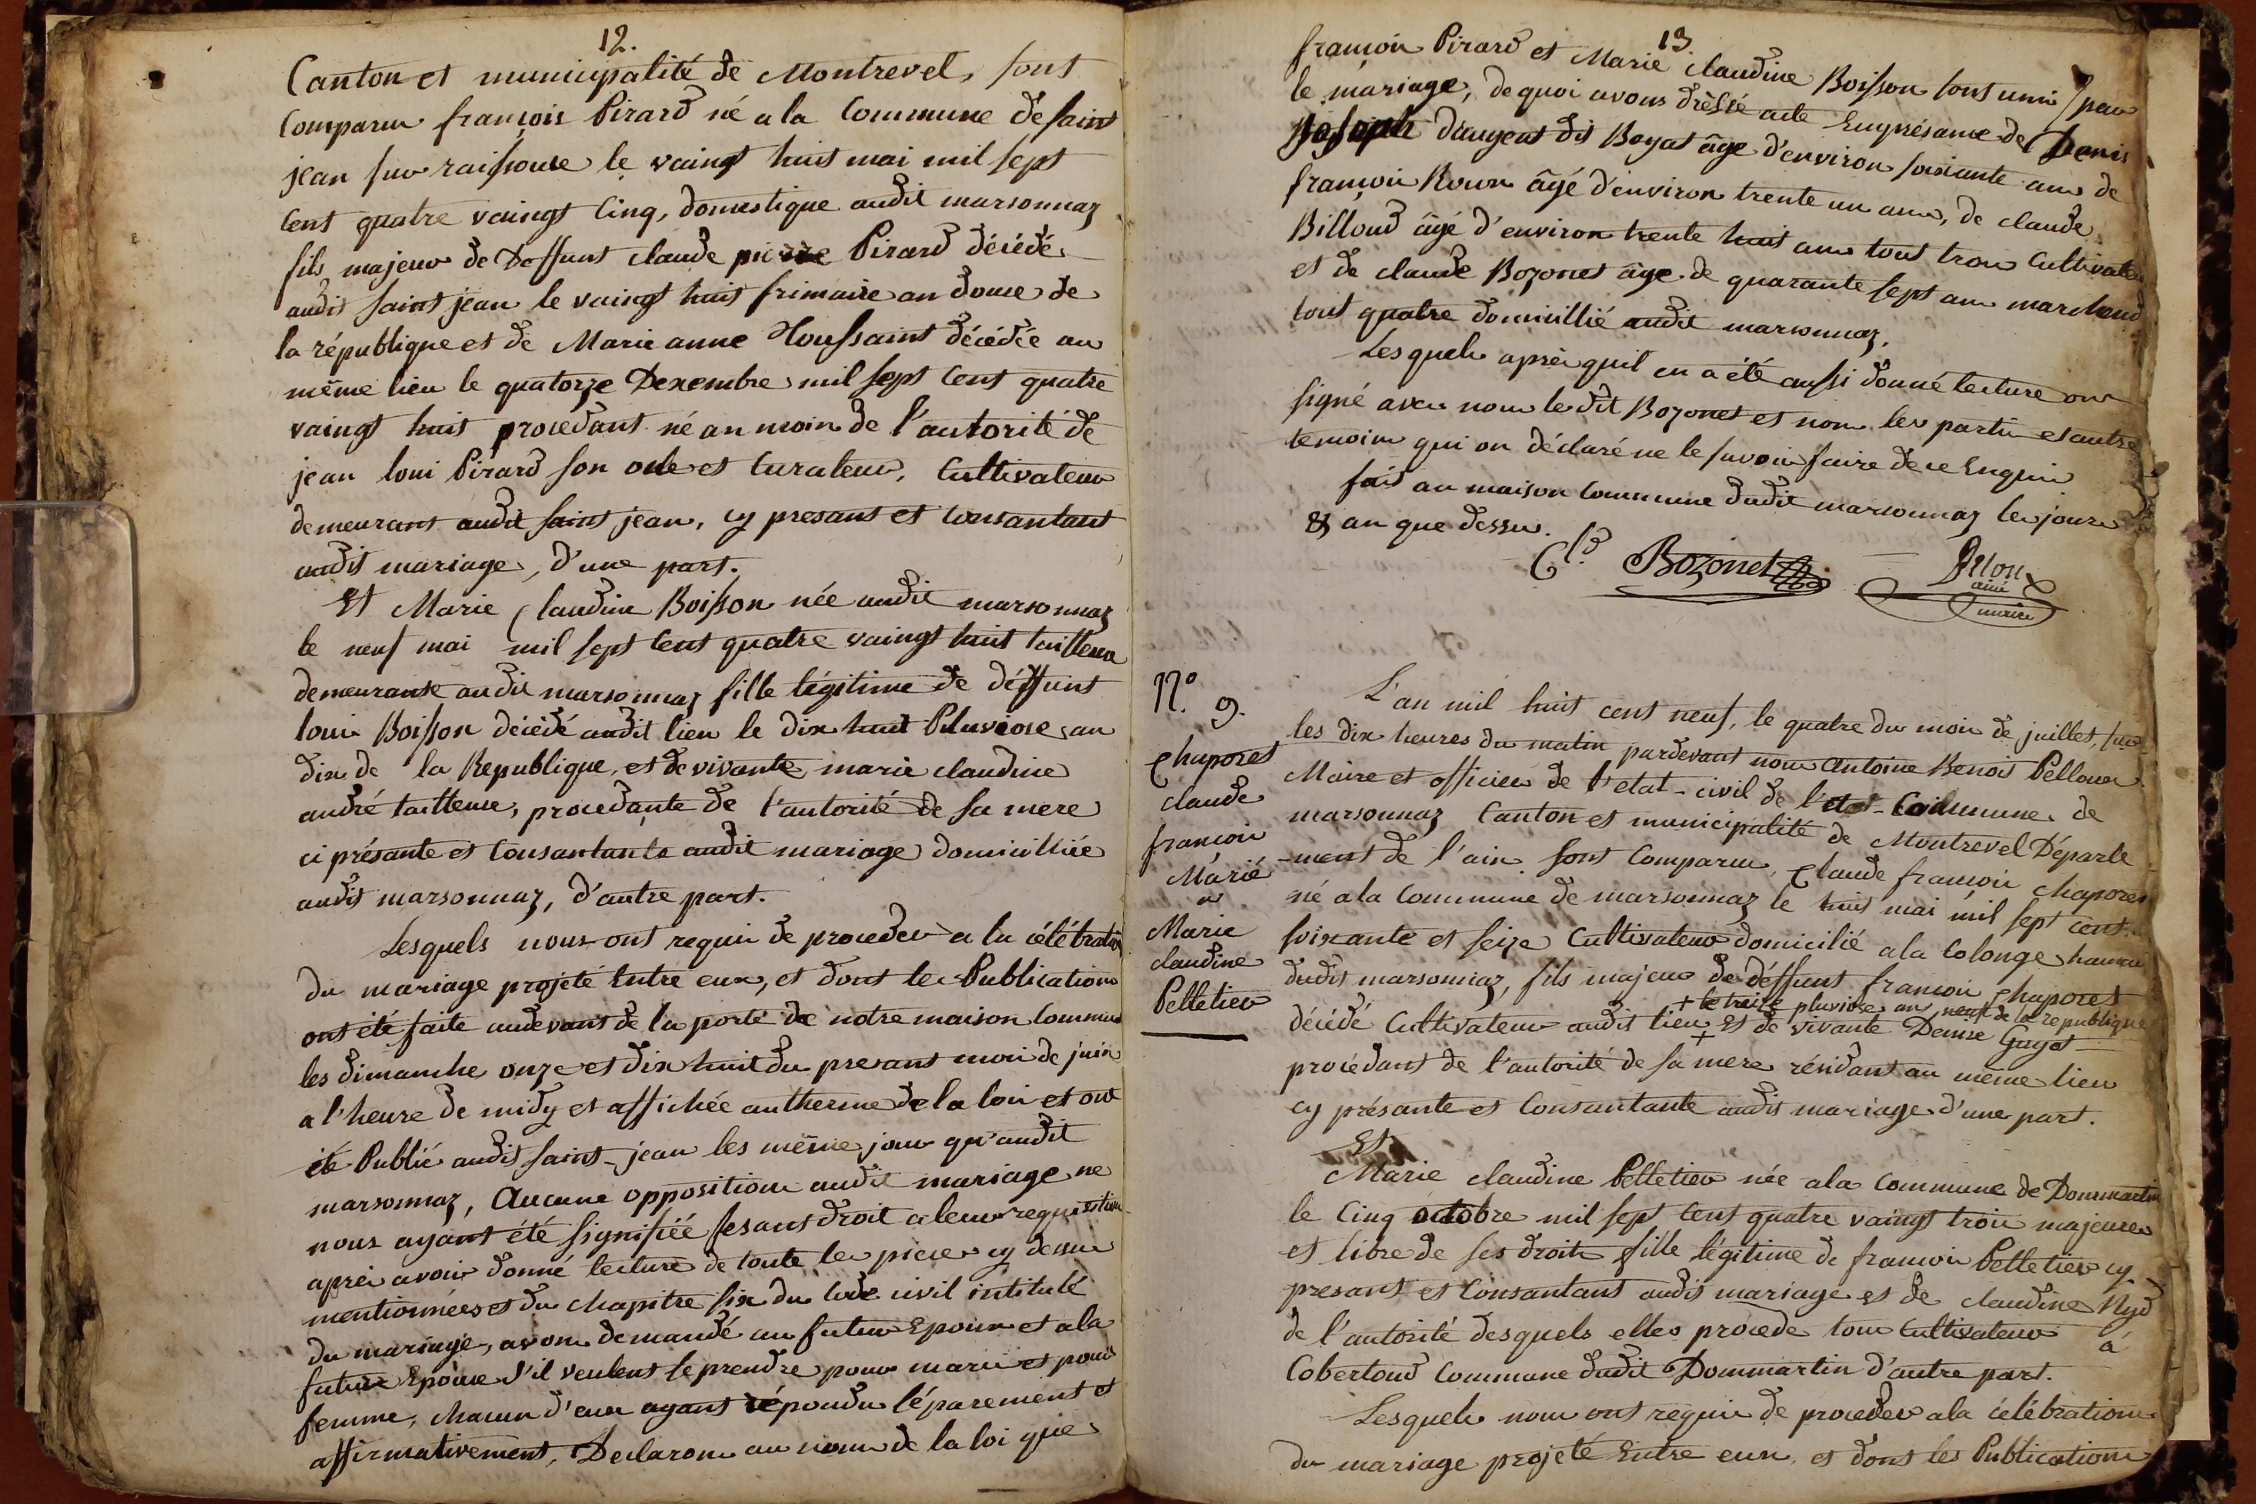 12.
Canton et municipalité de Montrevel, sont
Comparu françois Pirard né a la Commune de saint
jean sur raissouse le vaingt huit mai mil sept
Cent quatre vaingt Cinq, domestique audit marsonnaz
fils majeur de Deffunt claude pierre Pirard décédé
audit saint jean le vaingt huit frimaire an douze de
la république et de Marie anne Toussaint décédée au
même lieu le quatorze Dexembre mil sept Cent quatre
vaingt huit procedant né an moin de l'autorité de
jean loui Pirard son oncle et Curateur, Cultivateur
demeurant audit saint jean, cy presant et Consantant
audit mariage, d'une part.
Et Marie Claudine Boisson née audit marsonnaz
le neuf mai mil sept Cent quatre vaingt huit tailleuse
demeurante audit marsonnaz fille légitime de déffunt
loui Boisson décédé audit lieu le dix huit Pluviose an
dix de la Republique, et de vivante marie claudine
andré tailleuse, procedante de l'autorité de sa mere
ci présante et Consantante audit mariage domicilliée
audit marsonnaz, d'autre part.
Lesquels nous ont requi de proceder a la célébration
du mariage projeté Entre eux, et dont les Publications
ont été faite audevant de la porte de notre maison Commune
les dimanche onze et dix huit du presant moi de juin
a l'heure de midy et affichée autherme de la loi et ont
été Publié audit saint-jean les même jour qu'audit
marsonnaz, Aucune opposition audit mariage ne
nous ayant été signifiée fesant droit a leur requisition
aprèi avoir donné lecture de toute les piece cy dessu
mentionnées et du chapitre six du Code civil intitulé
du mariage, avons demandé au futur Epoux et a la
future Epouse s'il veulent se prendre pour mari et pour
femme, chacun d'eux ayant répondu séparement et
affirmativement, Declarons au nom de la loi que
13.
françoi Pirard et Marie claudine Boisson sont uni par
le mariage, de quoi avons dressé acte Enprésance de Denis
Joseph dangeat dit Boyat âge d'environ soixante ans de
françoi Roux âgé d'environ trente un ans, de claude
Billoud âgé d'environ trente huit ans tout troi Cultivateur
et de claude Bozonet âge de quarante sept an marchand
tout quatre domicillié audit marsonnaz.
Lesquels aprèi quil en a été aussi donné lecture ont
signé avec nous le dit Bozonet et non les parti et autre
temoin qui on déclaré ne le savoir faire de ce Enquis
fait au maison Commune dudit marsonnaz les jour
& an que dessu.
Cl.d Bozonet
Peloux
ainé
maire
N.º 9.
Chaponet
claude
françoi
Marié
a
Marie
claudine
Pelletier
L'an mil huit cent neuf, le quatre du moi de juillet, sur
les dix heures du matin pardevant nous antoine Benoit Pelloux
Maire et officier de l'etat-civil de l'etat-Commune de
marsonnaz Canton et municipalité de Montrevel Départe
-ment de l'ain sont Comparu, Claude françoi chaponet
né a la Commune de marsonnaz le huit mai mil sept cent
soixante et seize Cultivateur domicilié a la Colonge haute
dudit marsonnaz, fils majeur de déffunt françoi chaponet
+ le treize pluviose an neuf de la republique
décédé Cultivateur audit lieu + Et de vivante Denise Guyot
procédant de l'autorité de sa mere résidant au même lieu
cy présante et Consantante audit mariage d'une part.
Et
Marie claudine Pelletier née a la Commune de Dommartin
le Cinq octobre mil sept Cent quatre vaingt troi majeure
et libre de ses droits fille légitime de françoi Pelletier cy
presant et Consantant audit mariage et de claudine Nyd
de l'autorité desquels elles procede tout Cultivateur à
Cobertoud Commune dudit Dommartin d'autre part.
Lesquels nous ont requi de proceder a la célébration
du mariage projeté Entre eux, et dont les Publication